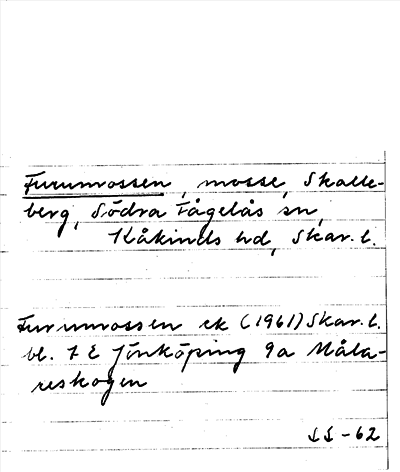 Furumossen, mosse, Skalle-
berg, Södra Fågelås sn,
Kåkinds hd, Skar. l.
Furumossen ek (1961) Skar. l.
bl. 7 E Jönköping 9a Måla-
reskogen
SS -62